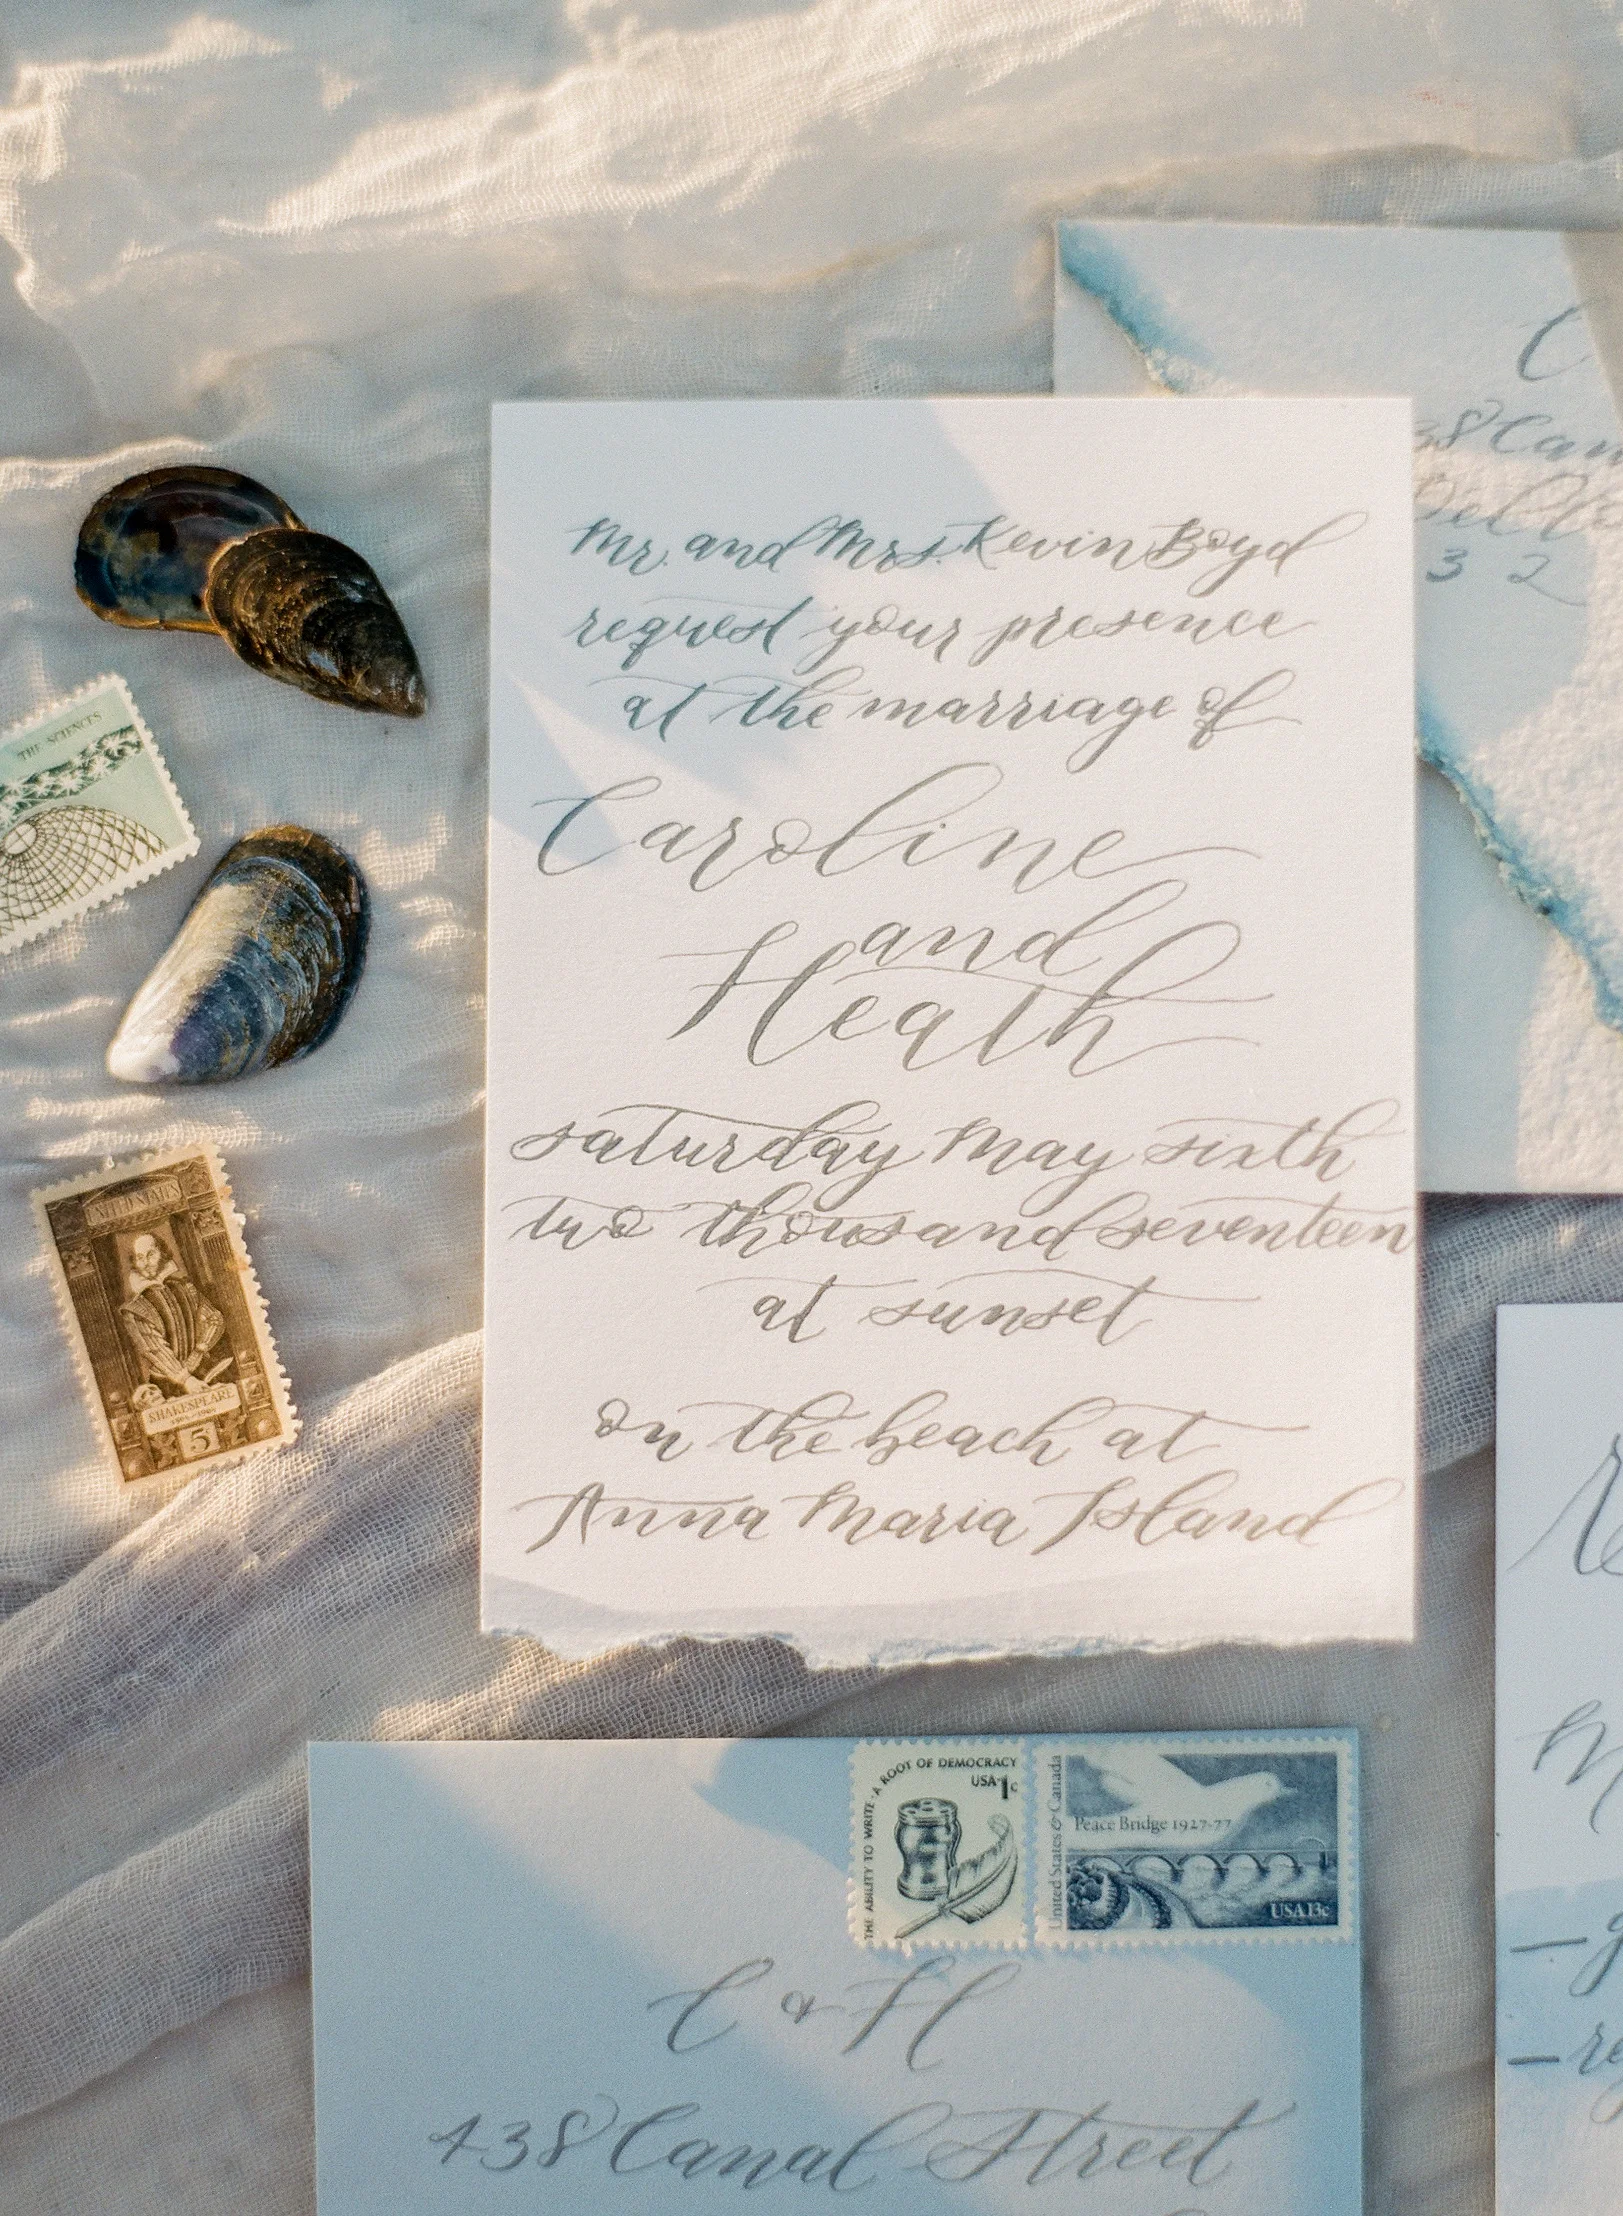 Mr. and Mrs. Kevin Boyd
request your presence
at the marriage of
Caroline
and
Heath
saturday May sixth
two thousand seventeen
at sunset
on the beach at
Anna Maria Island
THE SCIENCES
UNITED STATES
SHAKESPEARE
5
THE ABILITY TO WRITE · A ROOT OF DEMOCRACY
USA 1c
United States & Canada
Peace Bridge 1927-77
USA 13c
C & H
438 Canal Street
C
38 Can
3 2